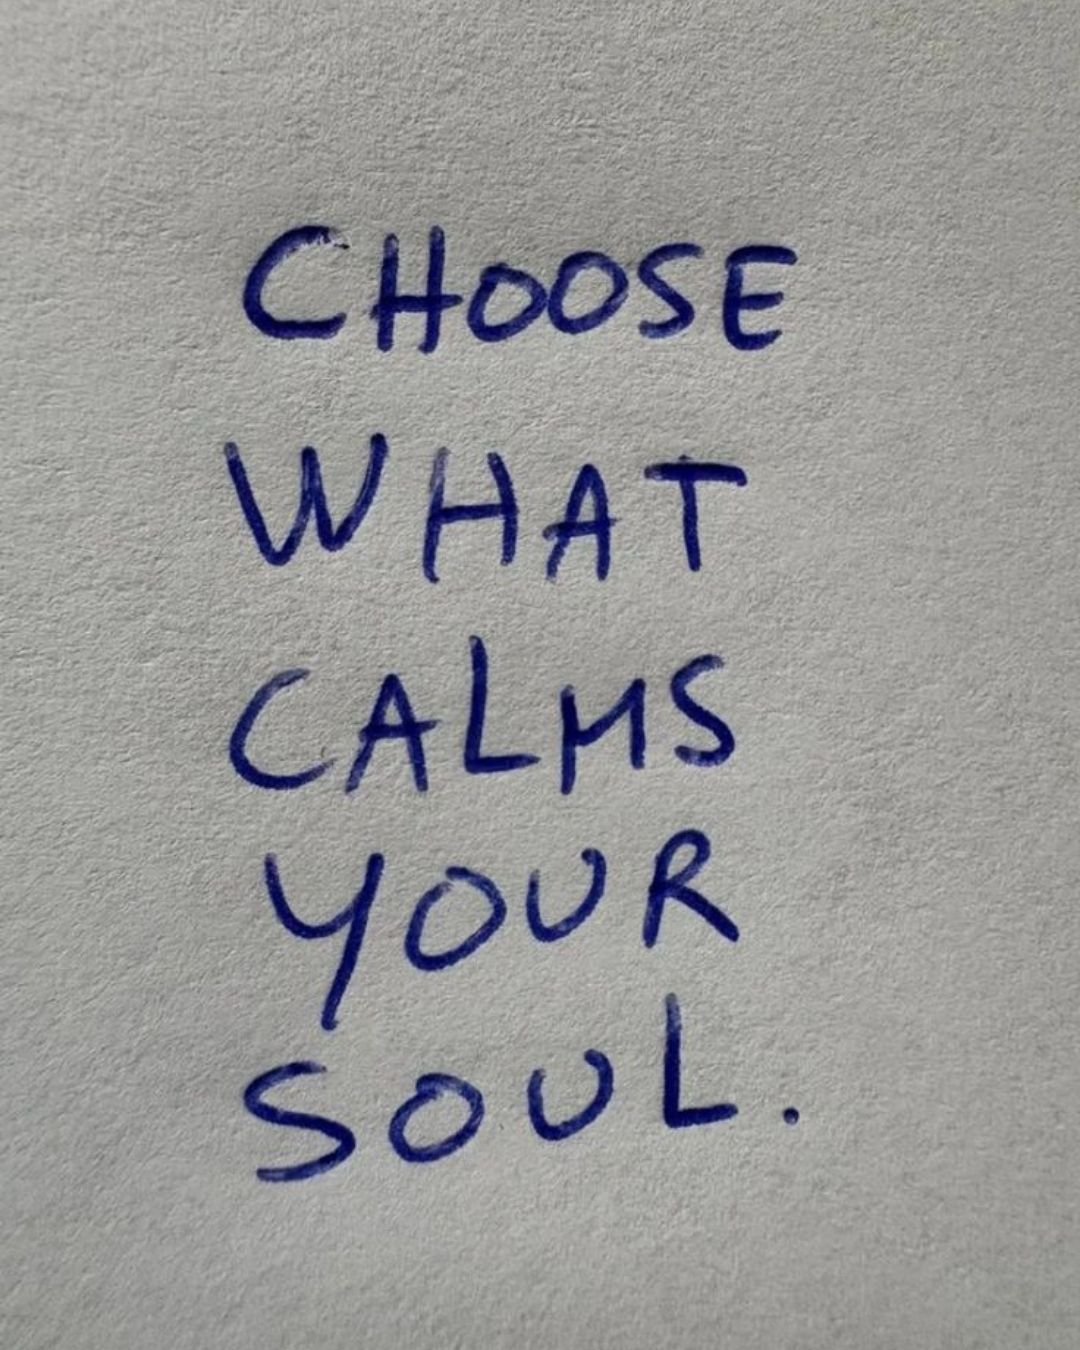 CHOOSE
WHAT
CALMS
YOUR
SOUL.